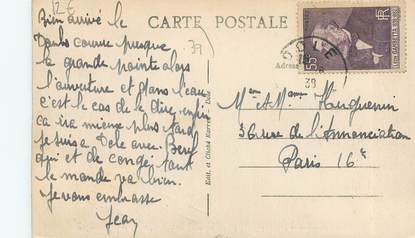 12 €
CARTE POSTALE
Bien arrivé le
Doubs couvre presque
la grande pointe alors
l'ouverture et dans l'eau
c'est le cas de le dire, enfin
ça ira mieux plus tard
je suis a Dole avec
qui et de congé, tout
le monde va bien.
Je vous embrasse
Jean
39
Edit. et Cliché Karrer - Dole
Adresse
DOLE
39
55
RF
Mr et Mme Huguenin
36 rue de l'Annonciation
Paris 16e